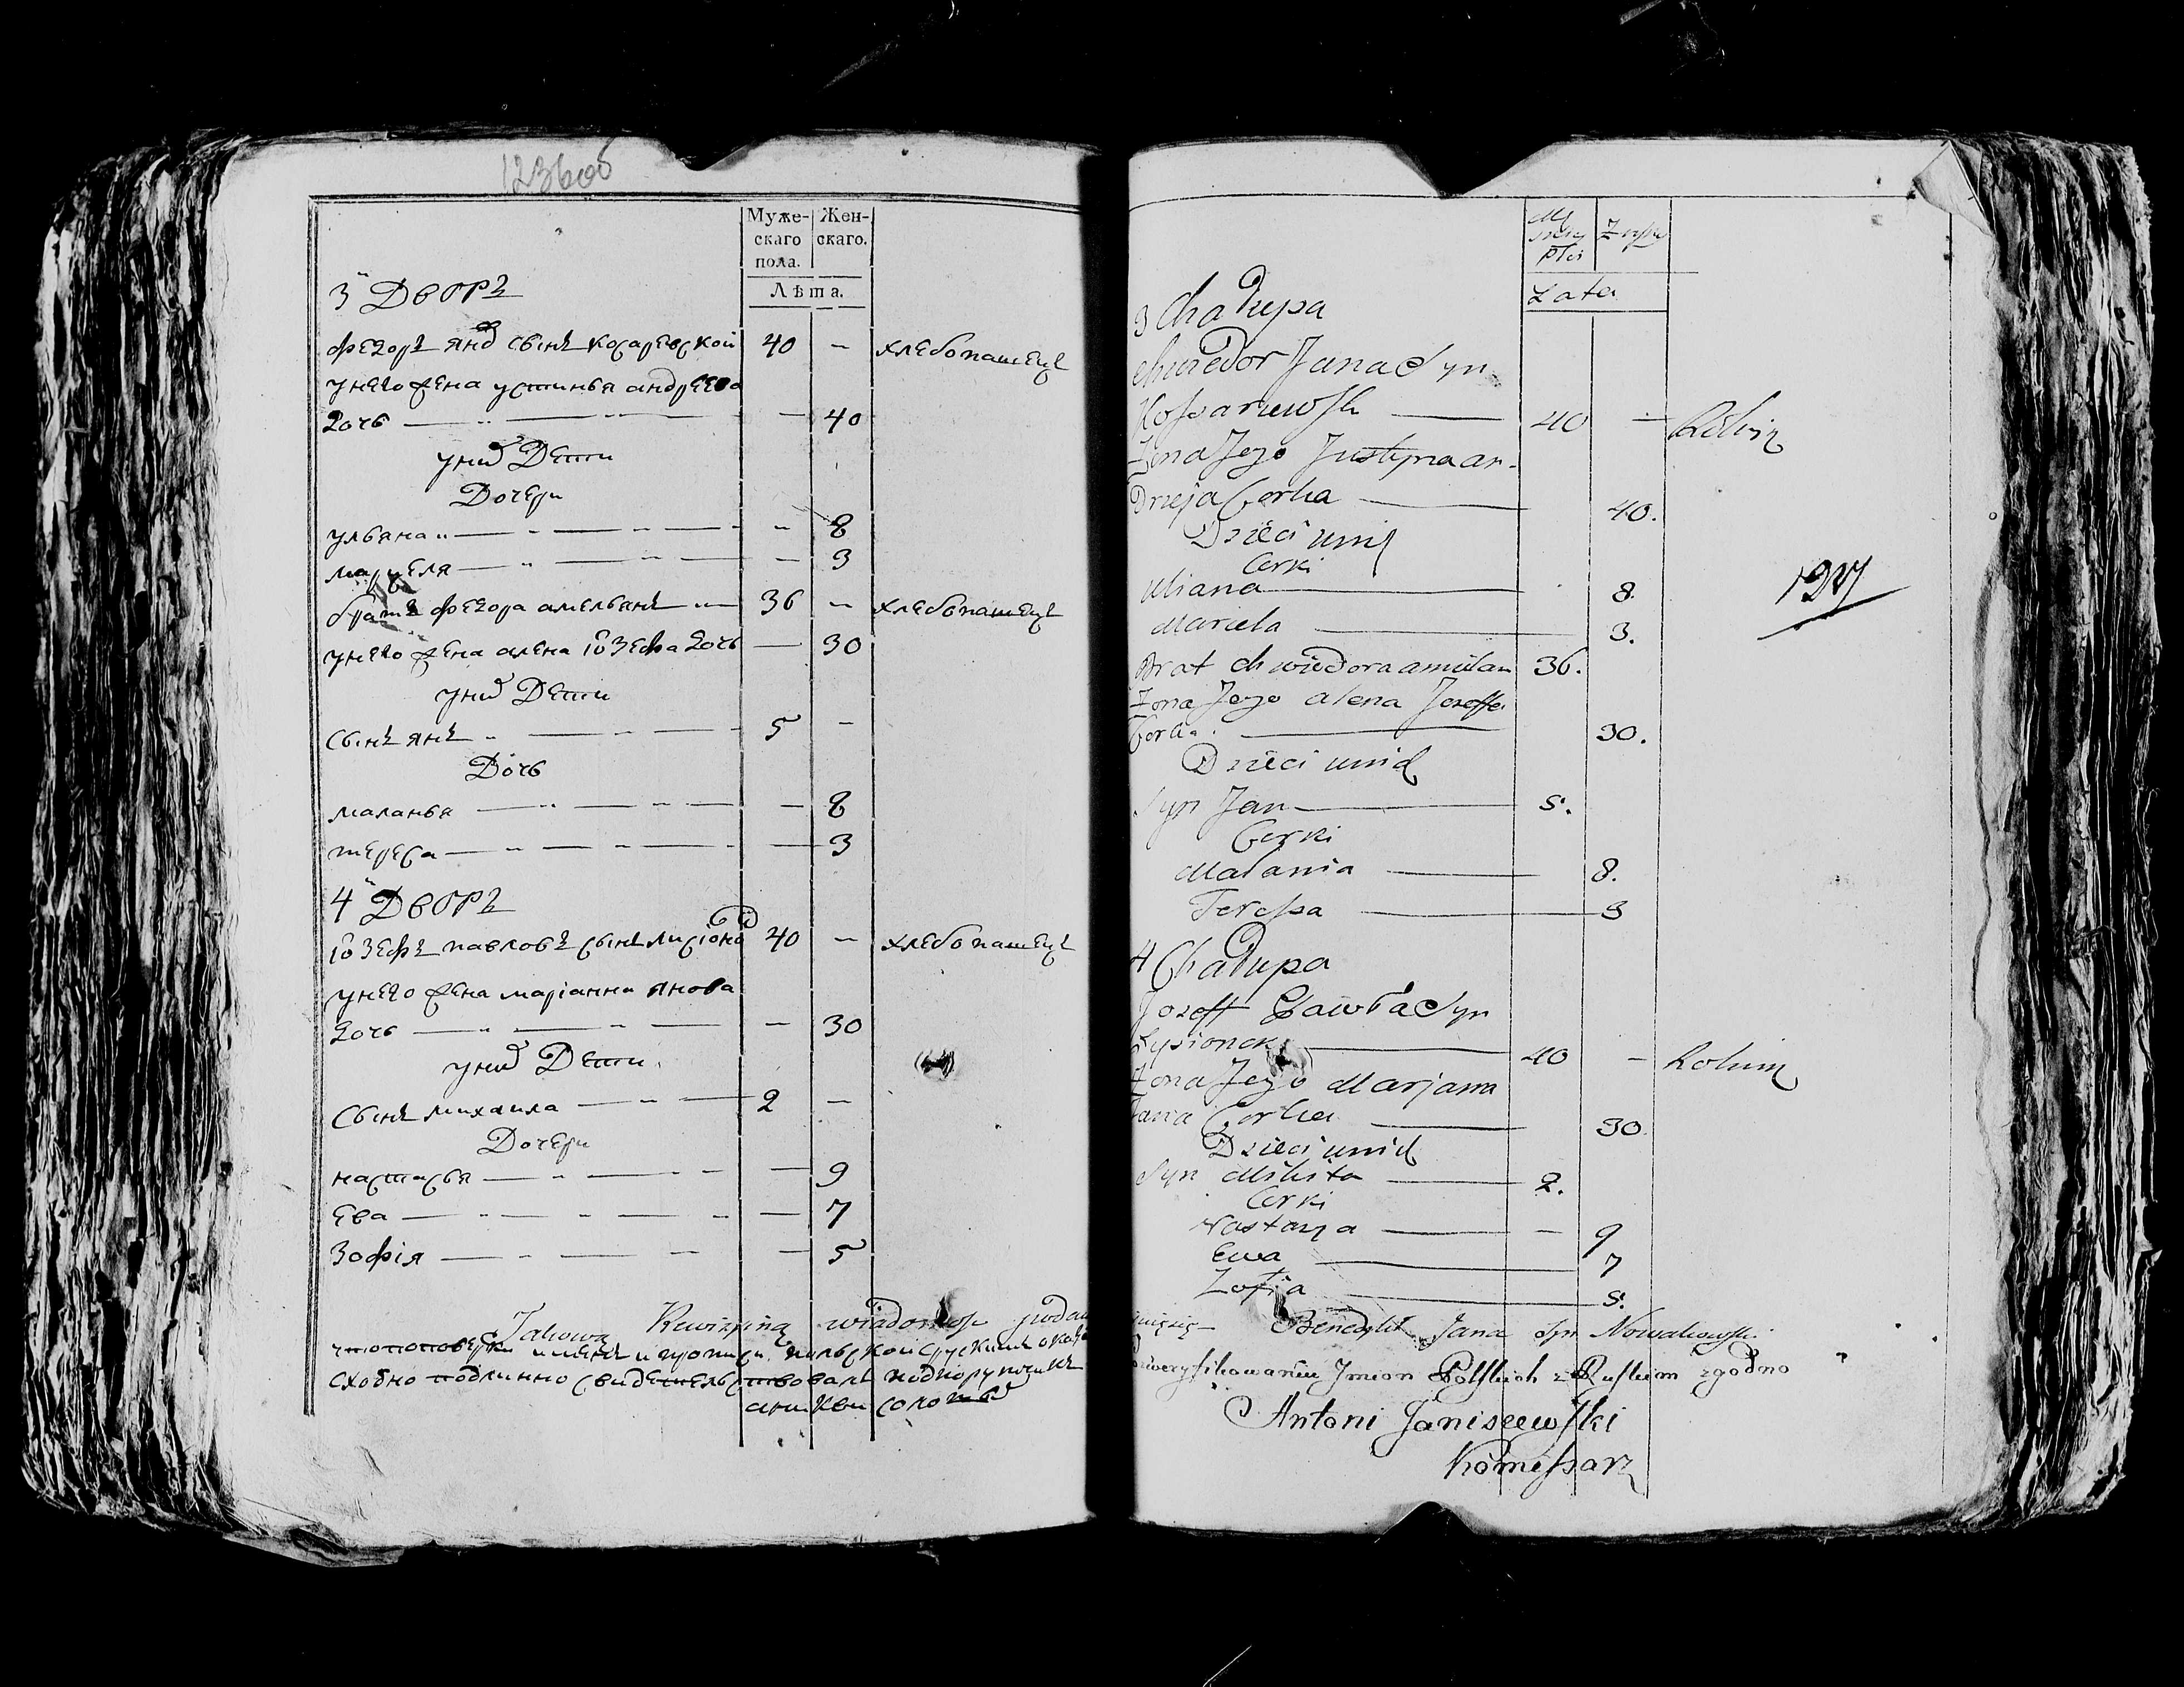 123 об
Муже-
скаго
пола.
Жен-
скаго.
Лѣта.
3 Дворъ
Федоръ Яна сынъ Косаревской 40 — хлебопашецъ
у него жена Устинья Андреева
дочь — 40
у них Дети
Дочери
Ульяна — — 8
Марцеля — — 3
братъ Федора Амельянъ — 36 — хлебопашецъ
у него жена Алена Іозефа дочь — 30
у них Дети
сынъ Янъ — 5 —
Дочь
Маланья — — 8
Тереса — — 3
4 Дворъ
Іозефъ Павловъ сынъ 40 — хлебопашецъ
у него жена Маріанна Янова
дочь — — 30
у них Дети
Сынъ Михаила — 2 —
Дочери
Настасья — — 9
Ева — — 7
Зофія — — 5
Takową Rewizyiną wiadomość podau
именъ и
сходно подлинно свидетельствовалъ подпорутчикъ
Lata
3 Chałupa
Chwiedor Jana Syn
Kossarzewski — 40 —
Żona Jego Justyna an-
Drzeja Corka — 40.
Dzieci unich
Corki
Uliana — 8.
Marcela — 3.
Brat Chwiedora amilan 36.
Żona Jego alena Jozeffa
Corka — 30.
Dzieci unich
Syn Jan — 5.
Corki
Malania — 8.
Teressa — 3
4 Chałupa
Jozeff Pawła Syn
Łysionek — 40 —
Żona Jego Marjana
Jana Corka — 30
Dzieci unich
Syn Mikita — 2.
Corki
Nastazja — — 9
Ewa — 7
Zofia — 5.
Benedykt Jana Syn Nowakowski
Zweryfikowaniu Jmion Polskich z Ruskim zgodno
Antoni Janiszewski
Komissarz